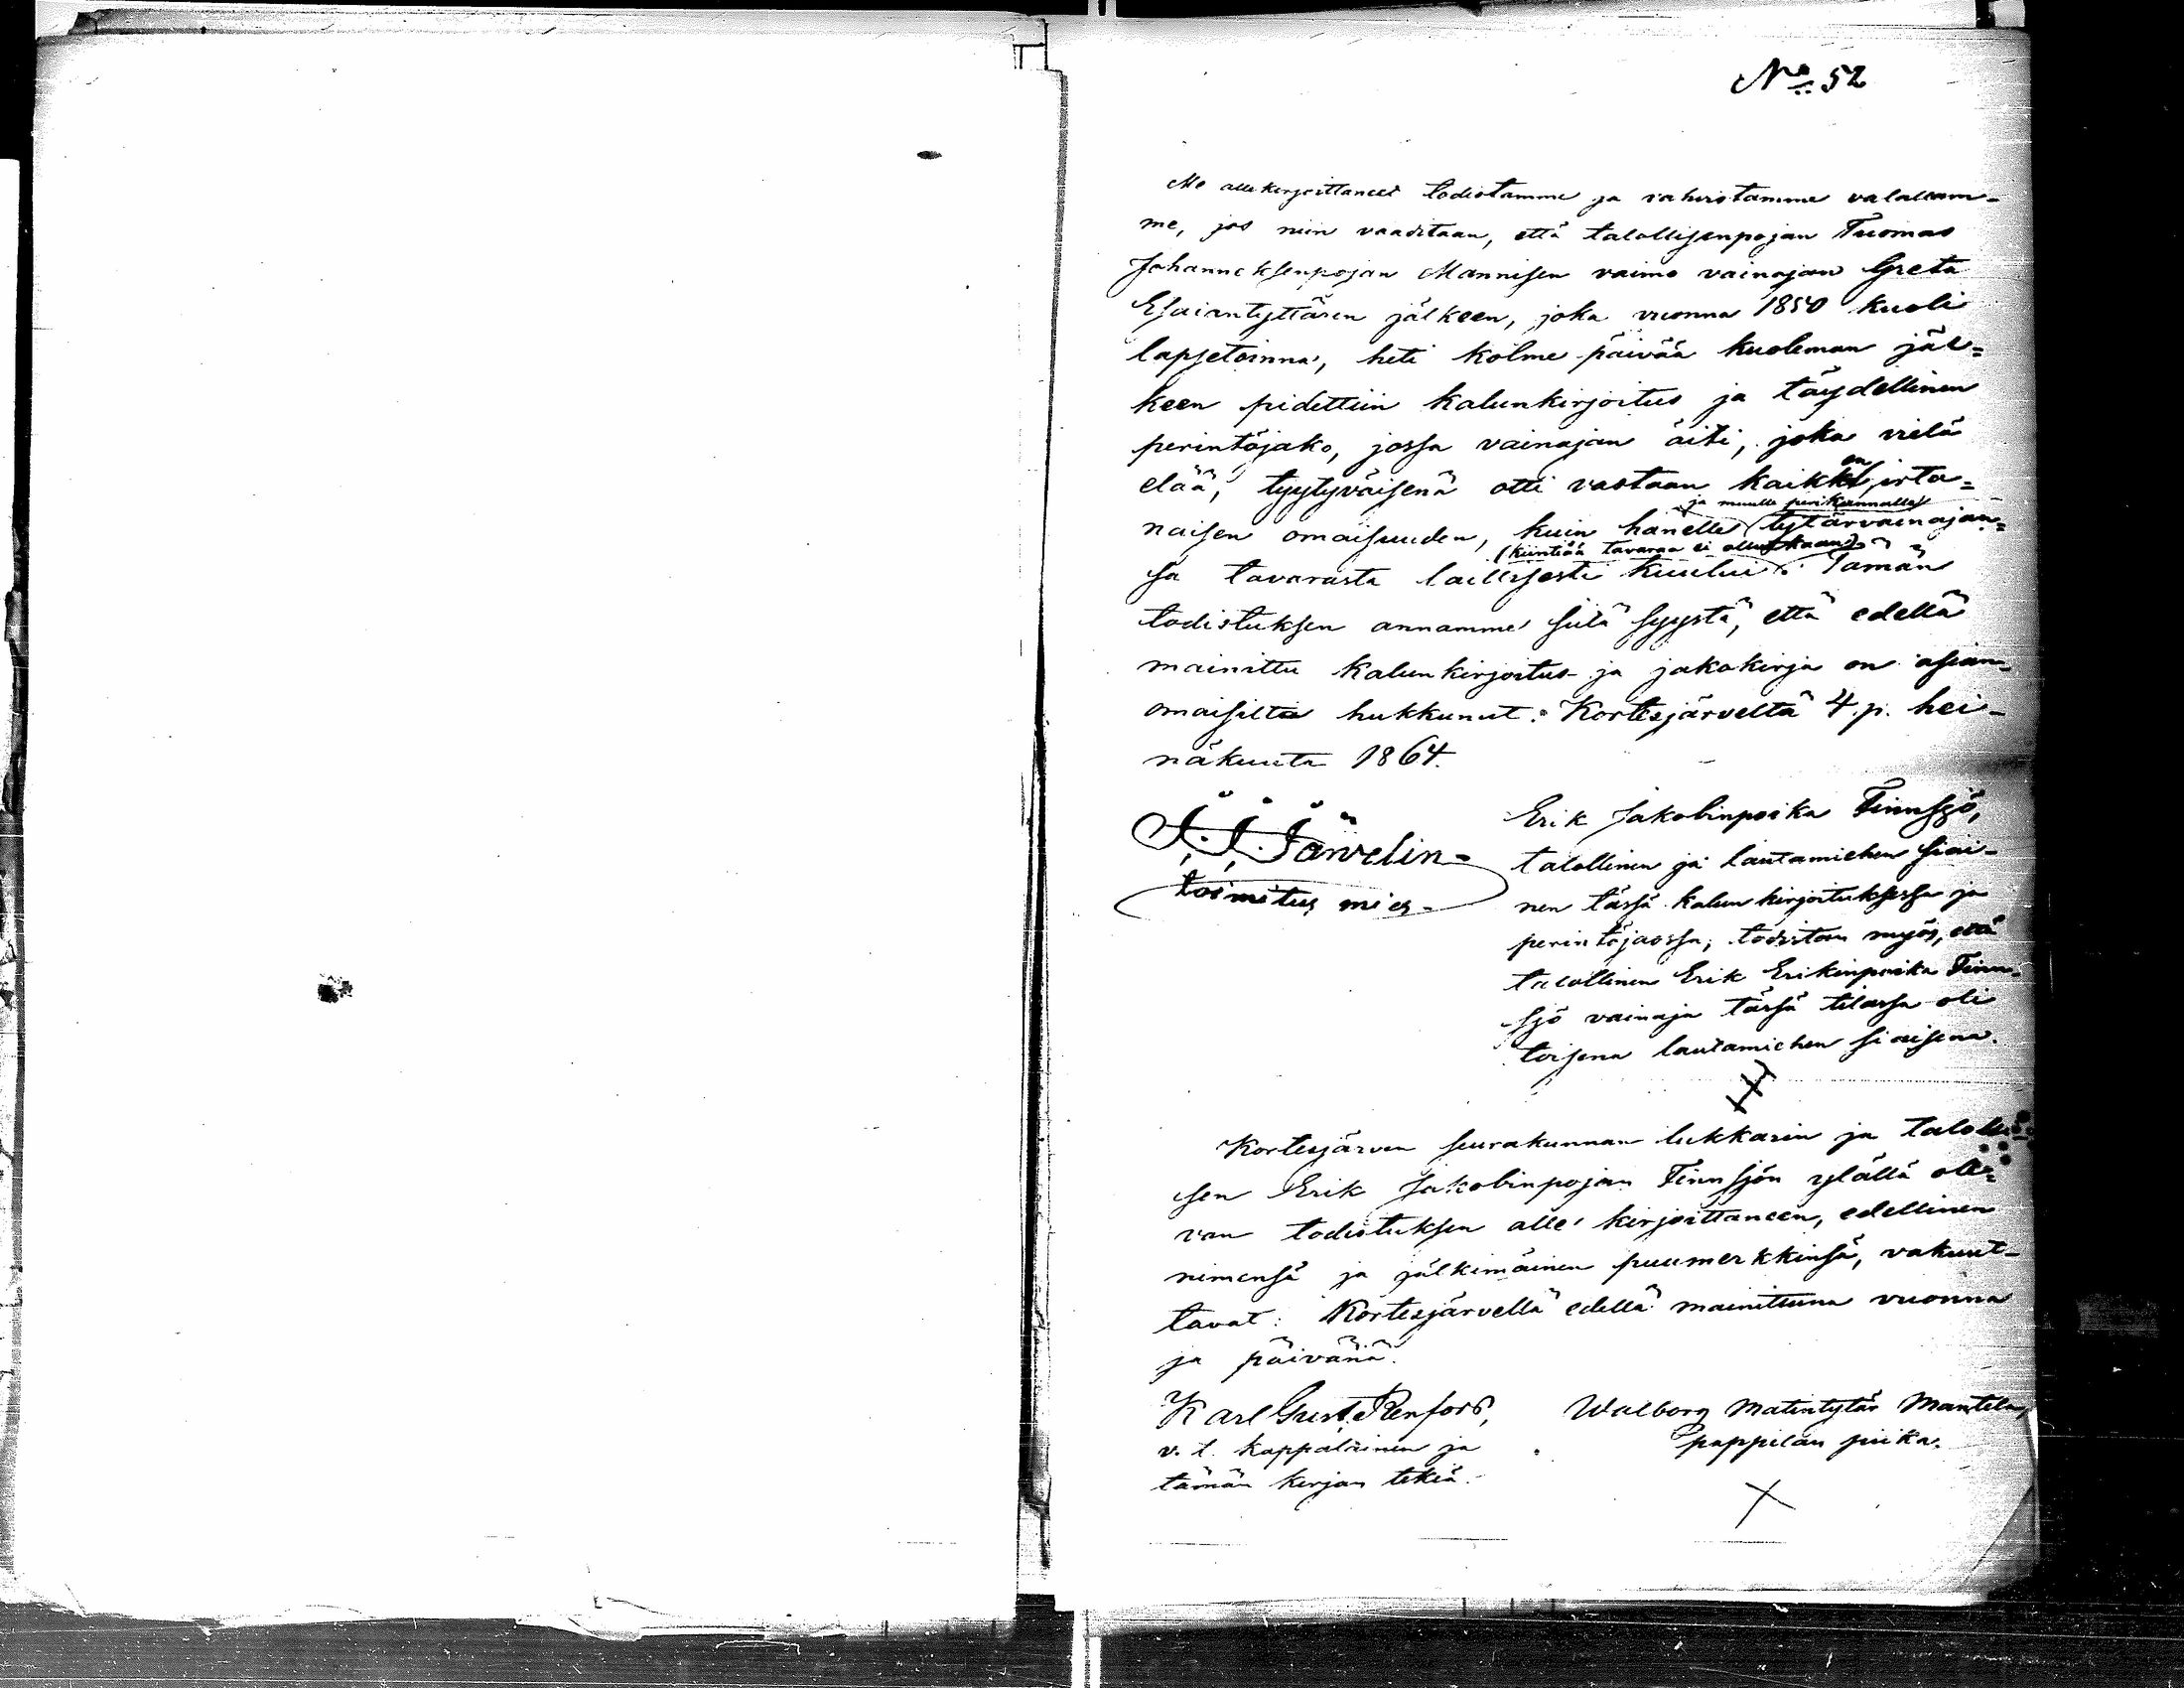 No 52
Me allekirjoittaneet todistamme ja vahvistamme valallam-
me, jos niin vaaditaan, että talollisenpojan Tuomas
Johanneksenpojan Mannisen vaimo vainajan Greta
Esaiantyttären jälkeen, joka vuonna 1850 kuoli
lapsetoinna, heti kolme päivää kuoleman jäl=
keen pidettiin kalunkirjoitus ja täydellinen
perintöjako, jossa vainajan äiti, joka vielä
elää, tyytyväisenä otti vastaan kaikken irta=
ja muulle perikunnalle
naisen omaisuuden, kuin hänelle tytärvainajan=
(kiintiää tavaraa ei ollutkaan)
sa tavarasta laillisesti kuului. Tämän
todistuksen annamme siitä syystä, että edellä
mainittu kalunkirjoitus- ja jakokirja on asian-
omaisilta hukkunut. Kortesjärveltä 4. p. hei-
näkuuta 1864.
J. J. Järvelin-
toimitus mies-
Erik Jakobinpoika Finnsjö,
talollinen ja lautamiehen siai-
nen tässä kalunkirjoituksessa ja
perintöjaossa, todistan myös, että
talollinen Erik Erikinpoika Finn-
sjö vainaja tässä tilassa oli
toisena lautamiehen siaisena.
Kortesjärven seurakunnan lukkarin ja talolli=
sen Erik Jakobinpojan Finnsjön ylällä ole=
van todistuksen alle kirjoittaneen, edellinen
nimensä ja jälkimäinen puumerkkinsä, vakuut-
tavat: Kortesjärvellä edellä mainittuna vuonna
ja päivänä.
Karl Gust. Renfors,
v. t. kappalainen ja
tämän kirjan tekiä.
Walborg Matintytär Mantela,
pappilan piika.